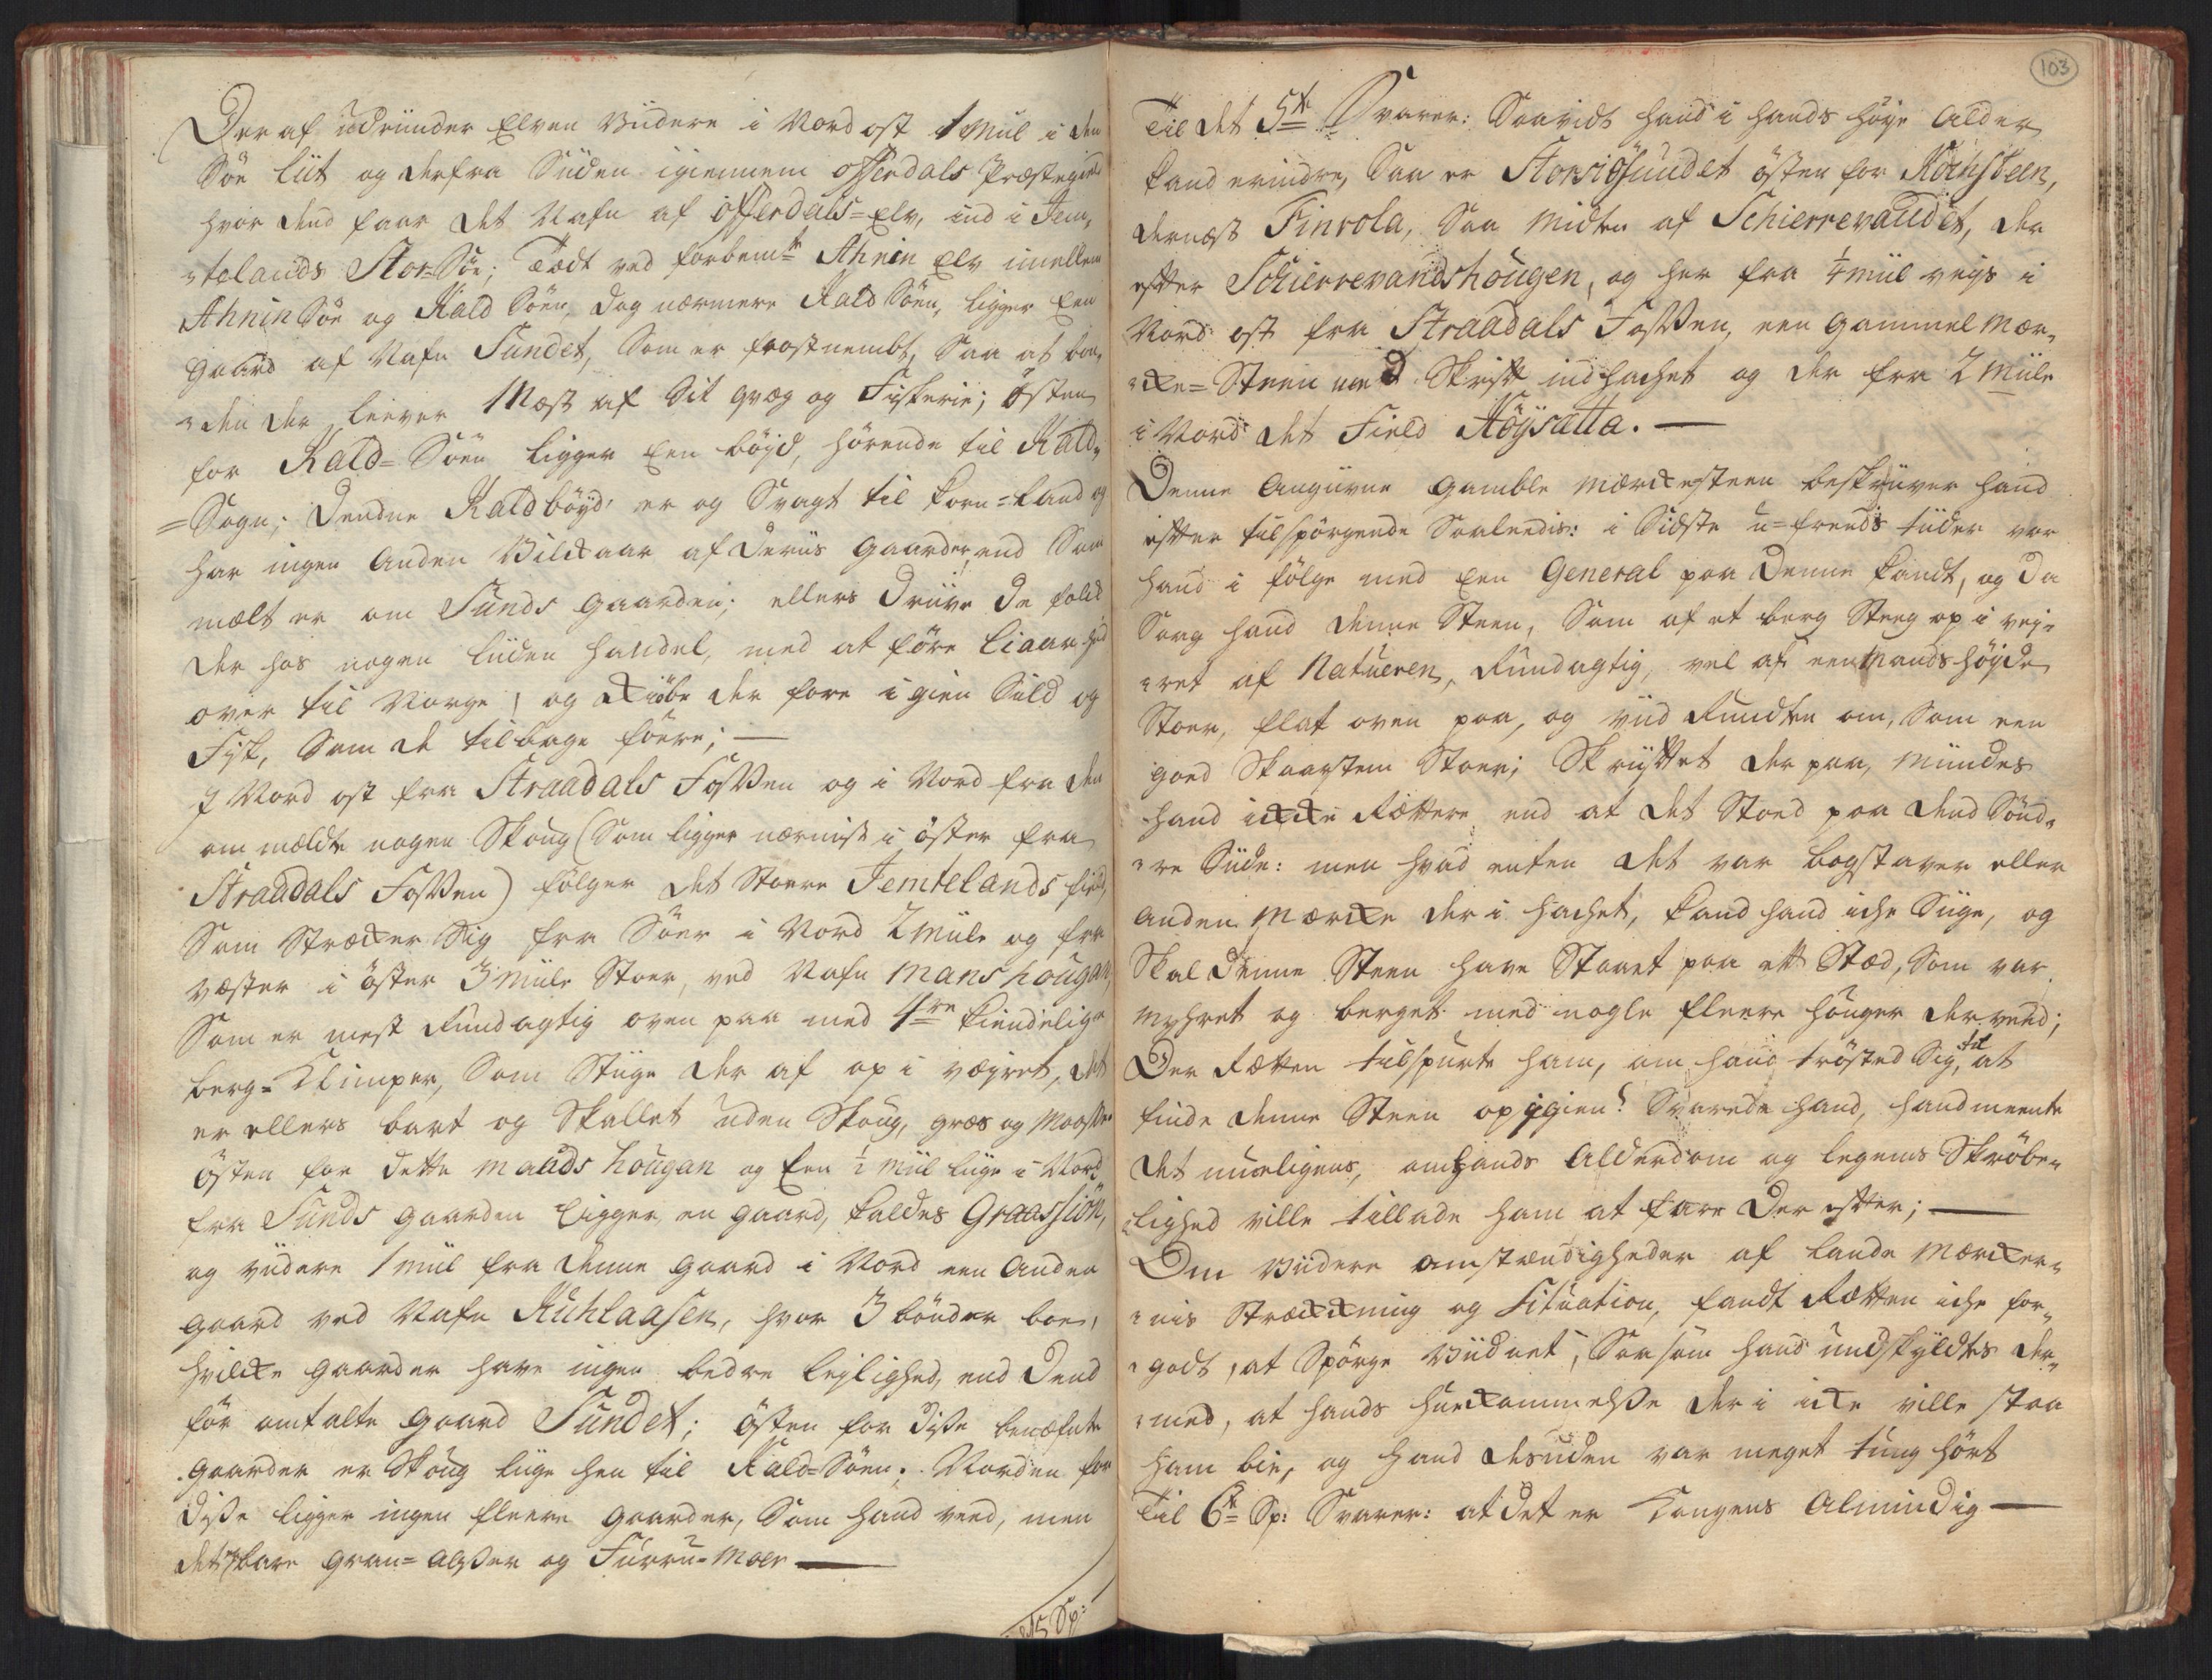 Der af udrinder Elven viidere i Nord ost 1 Miil i den
Söe Liit og derfra Siiden igiennem Offerdals Præstegield
hvor dend faar det Nafn af Offerdals=Elv, ind i Jem„
„telands Stor=Söe; Tædt ved forbem.te Ahnin Elv imellem
Ahnin Söe og Kald Söen, dog nærmere Kald Söen, ligger Een
Gaard af Nafn Sundet, som er frostnembt, Saa at bon„
„den der lever Mest af Sit qvæg og Fiskerie; østen
for Kald=Söen ligger Een böyd, hörende til Kald„
=Sogn; Dendne Kaldböyd er og Svagt til korn=Land og
har ingen Anden Vilckaar af deriis Gaarder, end Som
mælt er om Sunds Gaarden; ellers driive de folck
der hos nogen liiden handel, med at före Liaar hid
over til Norge, og kiöbe der fore igien Sild og
Fisk, Som de tilbage före; —
I Nord ost fra Straadals Fossen og i Nord fra den
ommældte nogen Skoug (Som ligger nærmist i öster fra
Straadals Fossen) fölger det Store Jemtelands field,
Som Strecker Sig fra Söer i Nord 2 Miile og fra
væster i öster 3 Miile Stoer, ved Nafn Manshougan,
Som er mest Rundagtig oven paa med 4re kiendelige
berg=Klimper, Som Stiige der af op i væyret, det
er ellers bart og Skallet uden Skoug, græs og Maasse
østen for dette Mands hougan og Een ½ Miil liige i Nord
fra Sunds Gaarden ligger en gaard, kaldes Graassiön,
og viidere 1 Miil fra denne Gaard i Nord een Anden
gaard ved Nafn Kuhlaasen, hvor 3 bönder boe,
hvilcke gaarder have ingen bedre leylighed, end Dend
för omtalte Gaard Sundet; østen for disse benæfnte
gaarder er Skoug liige hen til Kald=Söen; Norden for
disse ligger ingen fleere gaarder, Som hand veed, men
det er bare gran=Alsser og Furru=Moer —
5 Sp:
103
Til det 5te Svarer: Saavidt hand i hands höye Alder
kand erindre, Saa er Storsiösundet østen for Köensteen,
dernæst Finrola, Saa Midten af Schierrevandet, der
efter Schierrevandshougen, og her fra ¼ Miil veys i
Nord ost fra Straadals Fossen, een gammel Mær„
„cke=Steen med Skrift indhachet og der fra 2 Miile
i Nord det Field Höysatta. —
Denne Angivne gamble Mærckesteen beskriiver hand
efter tilspörgende Saaleedis: i Sidste u=freeds tiider var
hand i fölge med Een General paa denne kandt, og da
Saag hand denne Steen, Som af et berg Steeg op i vey„
„ret af Natueren, Rundagtig, vel af een Mands höyde
Stoer, flat oven paa, og viid Rundten om, Som een
goed Skaarsteen Stoer; Skriftet der paa, Mindes
hand icke Rettere end at det Stoed paa dend Sönd„
„re Siide: men hvad enten det var bogstaver eller
anden Mærcke der i hachet, kand hand iche Siige, og
Skal denne Steen have Staaet paa ett Stæd, Som var
Myhret og berget med nogle fleere houger derveed;
Der Retten tilspurte ham, om hand tröstede Sig til at
finde denne Steen op igien? Svarede hand, hand meente
det mueligens, om hands Alderdom og legems Skröbe„
„lighed ville tillade ham at fare der efter; —
Om viidere omstændigheder af Lande Mærcker„
„nis Streckning og Situation, fandt Retten iche for„
„godt, at Spörge viidnet, Saasom hand undskyldte der„
„med, at hands huekommelsse der i icke ville staa
ham bie, og hand desuden var meget tung hört
Til 6te Sp: Svarer: at det er Kongens Alminding —